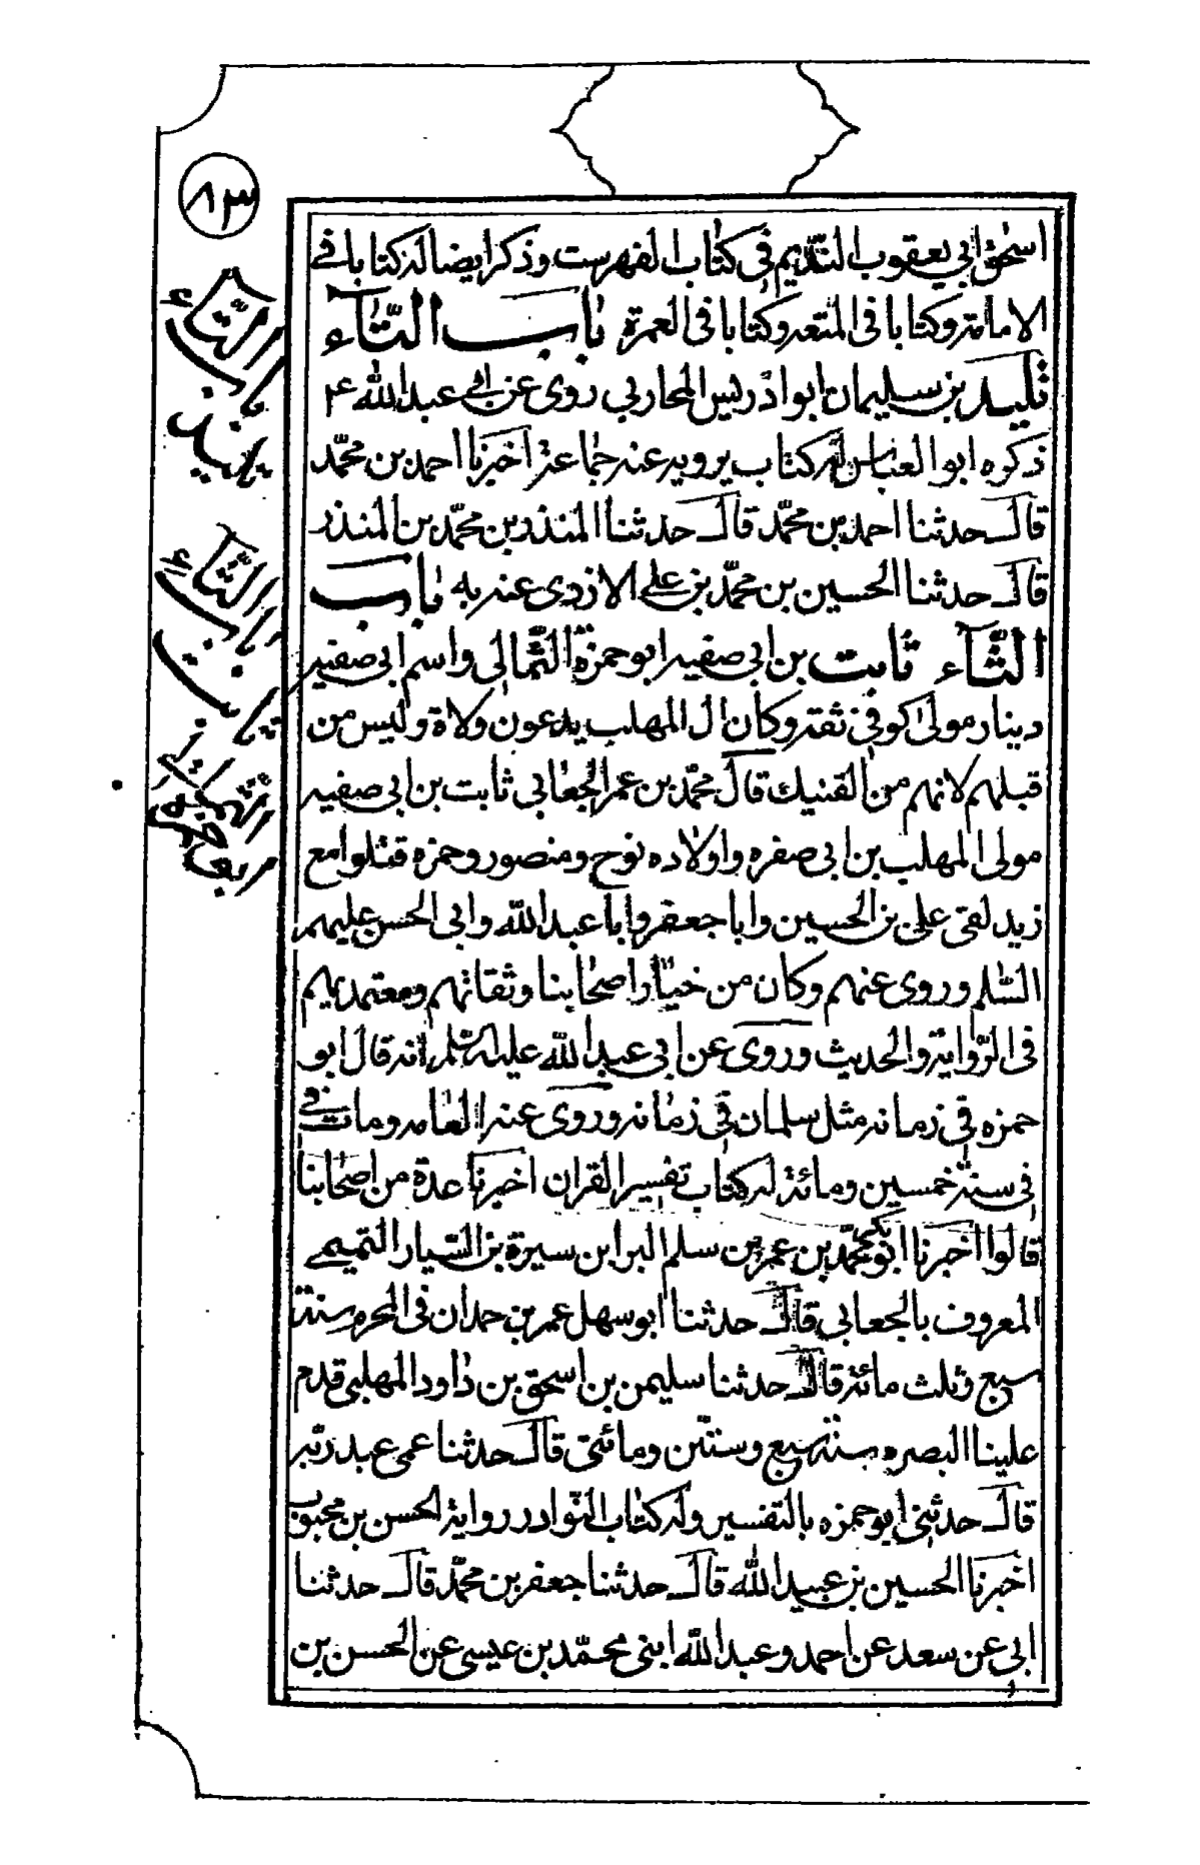 ٨٣
اسحق ابي يعقوب النّديم في كتاب الفهرست وذكر ايضا له كتابا في
الامامة وكتابا في المتعه وكتابا في العمرة باب التّاء
تليد بن سليمان ابو ادريس المحاربي روى عن ابي عبد الله ع
ذكره ابو العباس له كتاب يرويه عنه جماعة اخبرنا احمد بن محمّد
قال حدثنا احمد بن محمّد قال حدثنا المنذر بن محمّد بن المنذر
قال حدثنا الحسين بن محمّد بن علي الازدى عنه به باب
الثّاء ثابت بن ابي صفيه ابو حمزة الثّمالى واسم ابي صفيه
دينار مولى كوفي ثقة وكان ال المهلب يدعون ولاة وليس من
قبلهم لانهم من القنيك قال محمّد بن عمر الجعابي ثابت بن ابي صفيه
مولى المهلب بن ابي صفره واولاده نوح ومنصور وحمزه قتلوا مع
زيد لقى علي بن الحسين وابا جعفر وابا عبد الله وابى الحسن عليهم
السّلم وروى عنهم وكان من خيار اصحابنا وثقاتهم ومعتمديهم
في الرّواية والحديث وروى عن ابي عبد الله عليه السّلم انه قال ابو
حمزه في زمانه مثل سلمان في زمانه وروى عنه العامه ومات في
في سنة خمسين ومائة له كتاب تفسير القران اخبرنا عدة من اصحابنا
قالوا اخبرنا ابو بكر محمّد بن عمر بن سلم البرا ابن سيرة بن السّيار التميمي
المعروف بالجعابي قال حدثنا ابو سهل عمر بن حمدان في المحرم سنة
سبع وثلث مائة قال حدثنا سليمن بن اسحق بن داود المهلبي قدم
علينا البصره سنة سبع وستّين ومائتي قال حدثنا عمى عبد ربّه
قال حدثنى ابو حمزه بالتفسير وله كتاب النّوادر رواية الحسن بن محبوب
اخبرنا الحسين بن عبيد الله قال حدثنا جعفر بن محمّد قال حدثنا
ابي عن سعد عن احمد وعبد الله ابنى محمّد بن عيسى عن الحسن بن
باب التّاء
تليد
باب الثّاء
ثابت
ابو حمزة
الثّمالي